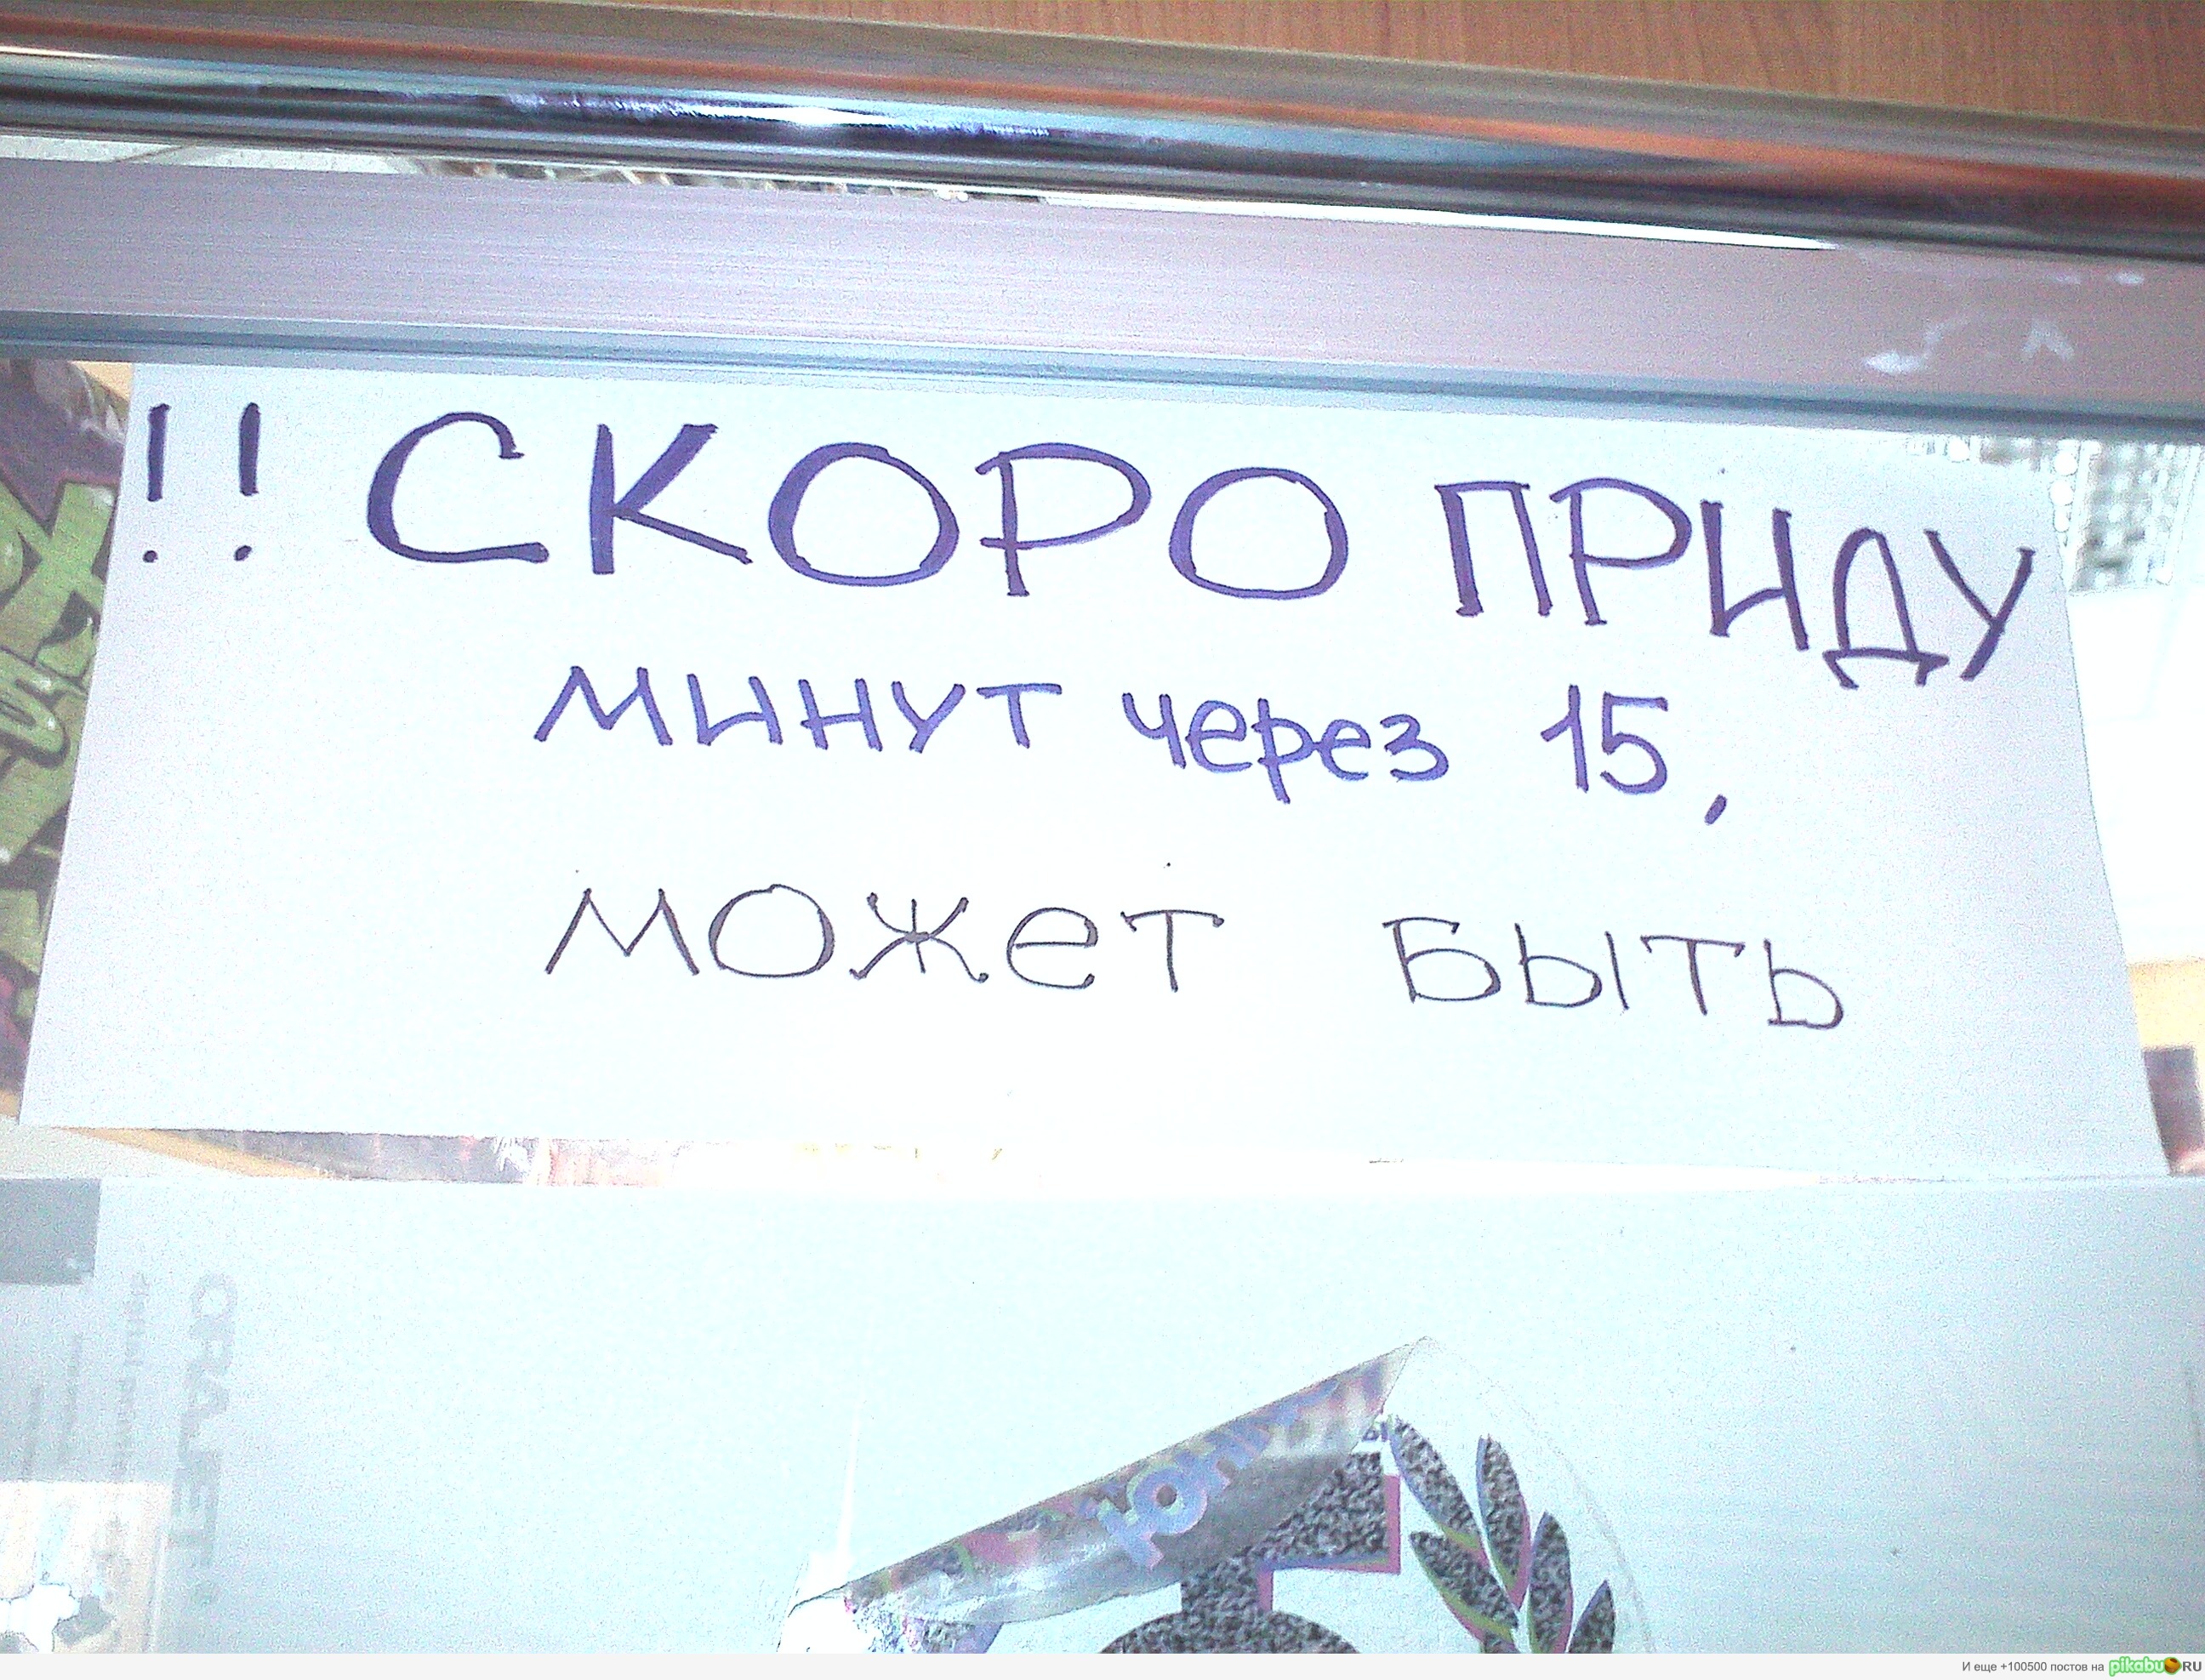 !! СКОРО ПРИДУ
МИНУТ через 15,
МОЖЕТ БЫТЬ
CRAFT
И еще +100500 постов на pikabu.RU